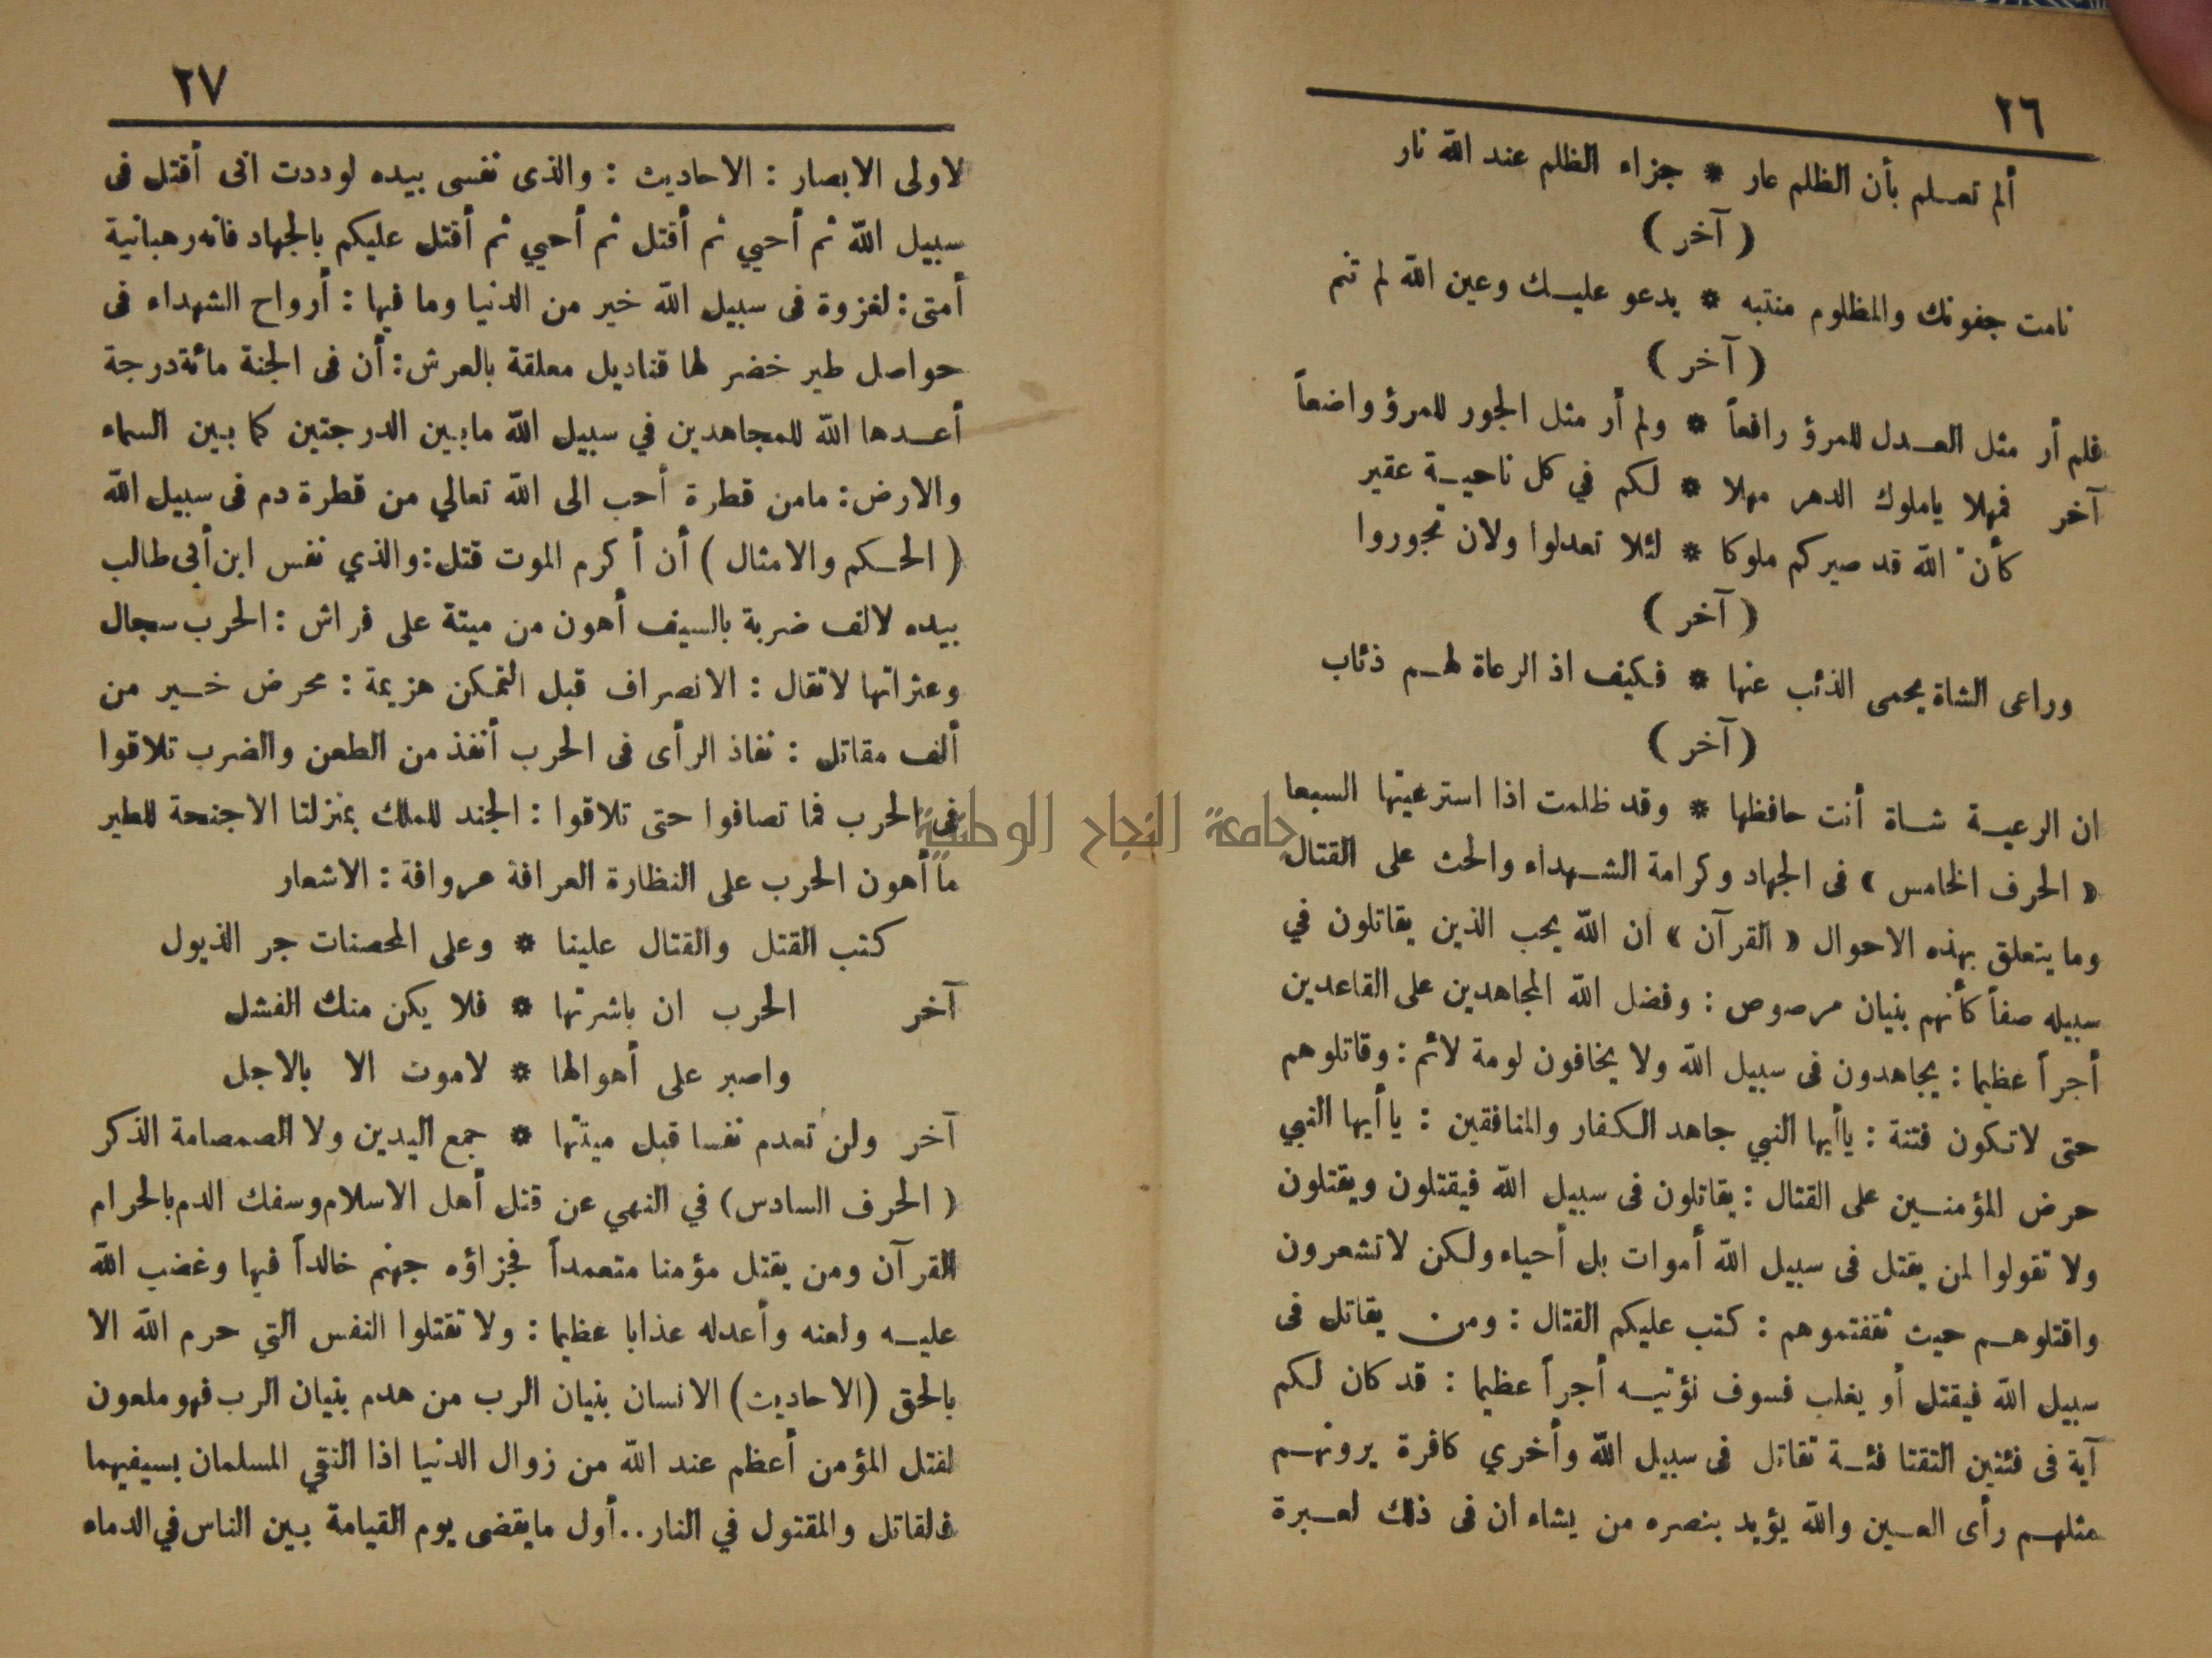 ٢٦
ألم تعلم بأن الظلم عار * جزاء الظلم عند الله نار
( آخر )
نامت جفونك والمظلوم منتبه * يدعو عليك وعين الله لم تنم
( آخر )
فلم أر مثل العدل للمرؤ رافعاً * ولم أر مثل الجور للمرؤ واضعاً
آخر فمهلا ياملوك الدهر مهلا * لكم في كل ناحية عقير
كأن الله قد صيركم ملوكا * لئلا تعدلوا ولان تجوروا
( آخر )
وراعى الشاة يحمى الذئب عنها * فكيف اذ الرعاة لهم ذئاب
( آخر )
ان الرعية شاة أنت حافظها * وقد ظلمت اذا استرعيتها السبعا
« الحرف الخامس » فى الجهاد وكرامة الشهداء والحث على القتال
وما يتعلق بهذه الاحوال « القرآن » ان الله يحب الذين يقاتلون في
سبيله صفاً كأنهم بنيان مرصوص : وفضل الله المجاهدين على القاعدين
أجراً عظيما : يجاهدون فى سبيل الله ولا يخافون لومة لائم : وقاتلوهم
حتى لاتكون فتنة : ياأيها النبي جاهد الكفار والمنافقين : ياأيها النبي
حرض المؤمنين على القتال : يقاتلون فى سبيل الله فيقتلون ويقتلون
ولا تقولوا لمن يقتل فى سبيل الله أموات بل أحياء ولكن لاتشعرون
واقتلوهم حيث ثقفتموهم : كتب عليكم القتال : ومن يقاتل فى
سبيل الله فيقتل أو يغلب فسوف نؤتيه أجراً عظيما : قد كان لكم
آية فى فئتين التقتا فئة تقاتل فى سبيل الله وأخري كافرة يرونهم
مثلهم رأى العين والله يؤيد بنصره من يشاء ان فى ذلك لعبرة
٢٧
لاولى الابصار : الاحاديث : والذى نفسى بيده لوددت انى أقتل فى
سبيل الله ثم أحيي ثم أقتل ثم أحيي ثم أقتل عليكم بالجهاد فانه رهبانية
أمتى : لغزوة فى سبيل الله خير من الدنيا وما فيها : أرواح الشهداء فى
حواصل طير خضر لها قناديل معلقة بالعرش : أن فى الجنة مائة درجة
أعدها الله للمجاهدين في سبيل الله مابين الدرجتين كما بين السماء
والارض : مامن قطرة أحب الى الله تعالي من قطرة دم فى سبيل الله
( الحكم والامثال ) أن أكرم الموت قتل : والذي نفس ابن أبى طالب
بيده لالف ضربة بالسيف أهون من ميتة على فراش : الحرب سجال
وعثراتها لاتقال : الانصراف قبل التمكن هزيمة : محرض خير من
ألف مقاتل : نفاذ الرأى فى الحرب أنفذ من الطعن والضرب تلاقوا
فى الحرب فما تصافوا حتى تلاقوا : الجند للملك بمنزلنا الاجنحة للطير
ما أهون الحرب على النظارة العرافة هروافة : الاشعار
كتب القتل والقتال علينا * وعلى المحصنات جر الذيول
آخر الحرب ان باشرتها * فلا يكن منك الفشل
واصبر على أهوالها * لاموت الا بالاجل
آخر ولن تعدم نفسا قبل ميتتها * جمع اليدين ولا الصمصامة الذكر
( الحرف السادس ) في النهي عن قتل أهل الاسلام وسفك الدم بالحرام
القرآن ومن يقتل مؤمنا متعمداً فجزاؤه جهنم خالداً فيها وغضب الله
عليه ولعنه وأعدله عذابا عظيما : ولا تقتلوا النفس التي حرم الله الا
بالحق (الاحاديث) الانسان بنيان الرب من هدم بنيان الرب فهو ملعون
لفتل المؤمن أعظم عند الله من زوال الدنيا اذا التقي المسلمان بسيفيهما
فالقاتل والمقتول في النار .. أول مايقضى يوم القيامة بين الناس في الدماء
جامعة النجاح الوطنية